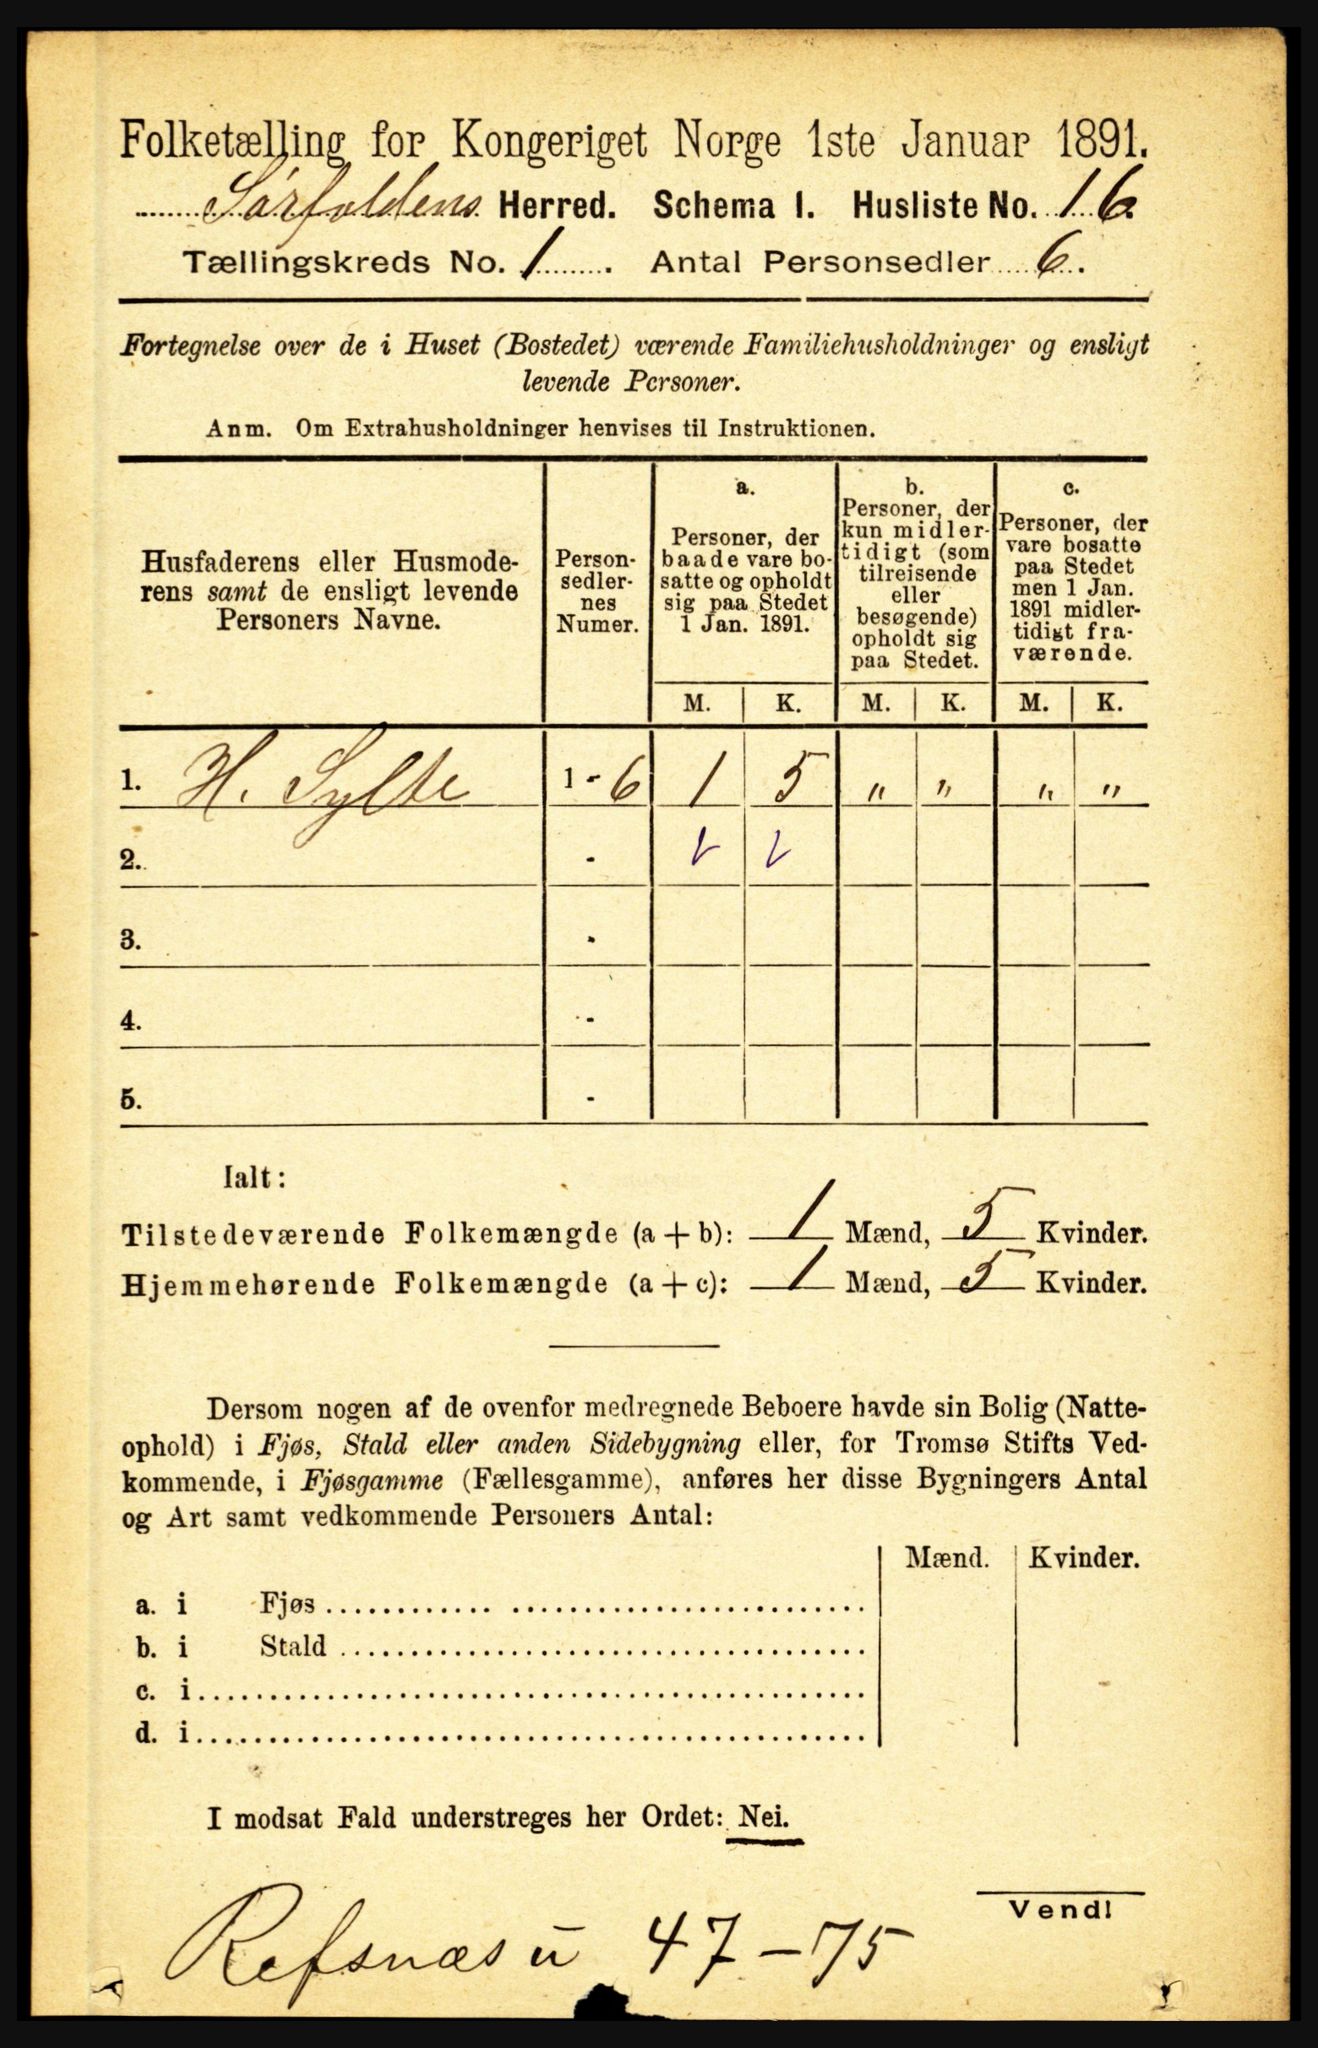 Folketælling for Kongeriget Norge 1ste Januar 1891.
Sørfoldens Herred. Schema I. Husliste No. 16
Tællingskreds No. 1. Antal Personsedler 6.
Fortegnelse over de i Huset (Bostedet) værende Familiehusholdninger og ensligt
levende Personer.
Anm. Om Extrahusholdninger henvises til Instruktionen.
Husfaderens eller Husmode-
rens samt de ensligt levende
Personers Navne.
Person-
sedler-
nes
Numer.
a.
Personer, der
baade vare bo-
satte og opholdt
sig paa Stedet
1 Jan. 1891.
b.
Personer, der
kun midler-
tidigt (som
tilreisende
eller
besøgende)
opholdt sig
paa Stedet.
c.
Personer, der
vare bosatte
paa Stedet
men 1 Jan.
1891 midler-
tidigt fra-
værende.
M. K. M. K. M. K.
1. H. Sylte 1-6 1 5 " " " "
2. -
3. -
4. -
5. -
Ialt:
Tilstedeværende Folkemængde (a + b): 1 Mænd, 5 Kvinder.
Hjemmehørende Folkemængde (a + c): 1 Mænd, 5 Kvinder.
Dersom nogen af de ovenfor medregnede Beboere havde sin Bolig (Natte-
ophold) i Fjøs, Stald eller anden Sidebygning eller, for Tromsø Stifts Ved-
kommende, i Fjøsgamme (Fællesgamme), anføres her disse Bygningers Antal
og Art samt vedkommende Personers Antal:
Mænd. Kvinder.
a. i Fjøs
b. i Stald
c. i
d. i
I modsat Fald understreges her Ordet: Nei.
Vend!
Refsnæs u 47-75